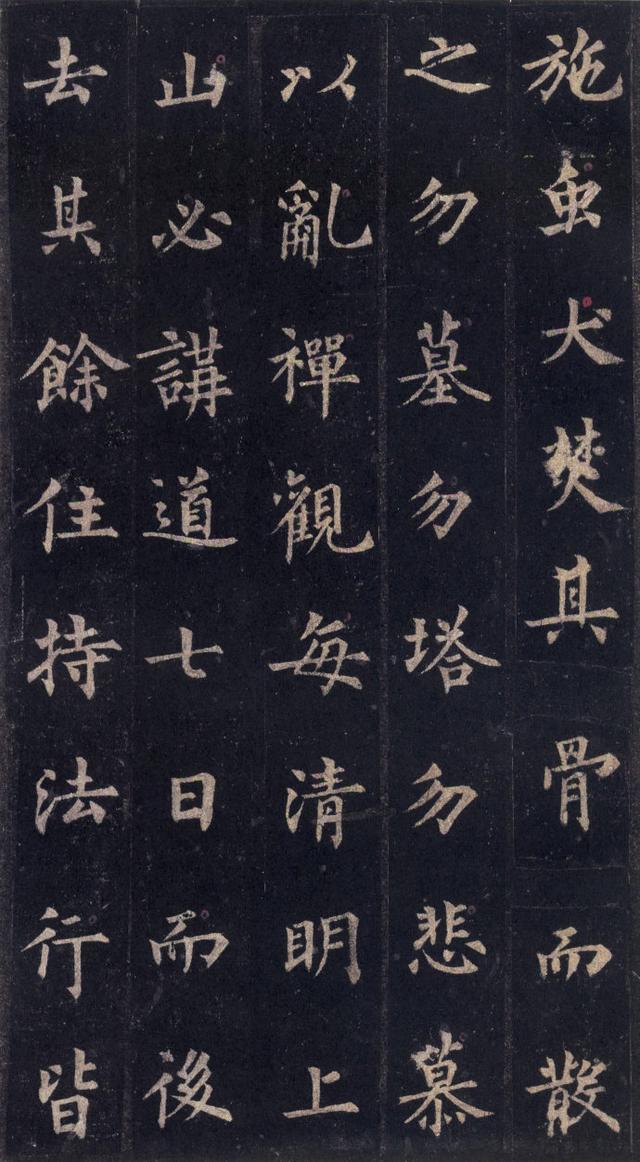 施虫犬焚其骨而散
之勿墓勿塔勿悲慕
以亂禪觀每清明上
山必講道七日而後
去其餘住持法行皆